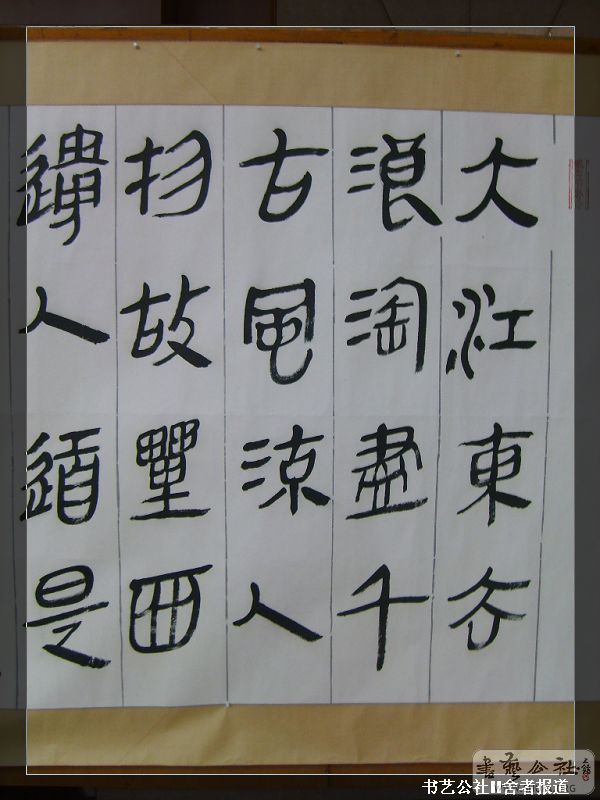 大江東去
浪淘盡千
古風流人
物故壘西
邊人道是
書藝公社
书艺公社II舍者报道